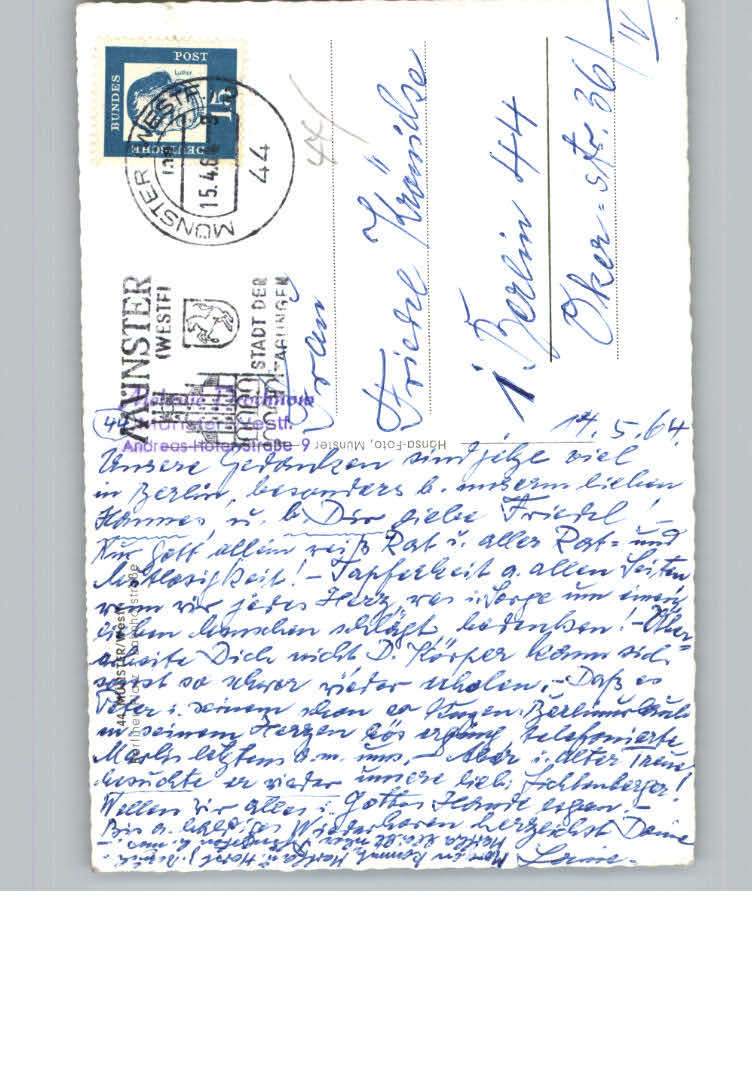 POST
BUNDES
DEUTSCHE
Luther
15
MÜNSTER (WESTF)
15.4.6
44
MÜNSTER
(WESTF)
STADT DER
TAGUNGEN
44/
Frau
Friedel
1 Berlin 44
Oker-str. 36/
IV
44
Münster Westf.
Andreas-Hofer-Straße 9
Hansa-Foto, Münster
44 MÜNSTER/Westf.
Berliner Platz Bahnhofstraße
14.5.64.
Unsere Gedanken sind jetzt viel
in Berlin, besonders b. unserm lieben
Hannes, u. b. Dir, liebe Friedel! –
Nur Gott allein weiß Rat u. aller Rat- und
! – Tapferkeit a. allen Seiten
wenn wir jedes Herz, was i. Sorge um einen
lieben Menschen schlägt, bedenken! – Über-
arbeite Dich nicht, D. Körper kann sich
sonst so schwer wieder erholen. – Daß es
Peter i. seinem schon so kurzen Berliner
m. seinem Herzen bös erging, telefonierte
letztens m. uns. – Aber i. alter Treue
besuchte er wieder unsere lieb. Lichtenberger!
Wollen wir alles i. Gottes Hände legen. –
Bis a. baldiges Wiederhören herzlichst Deine